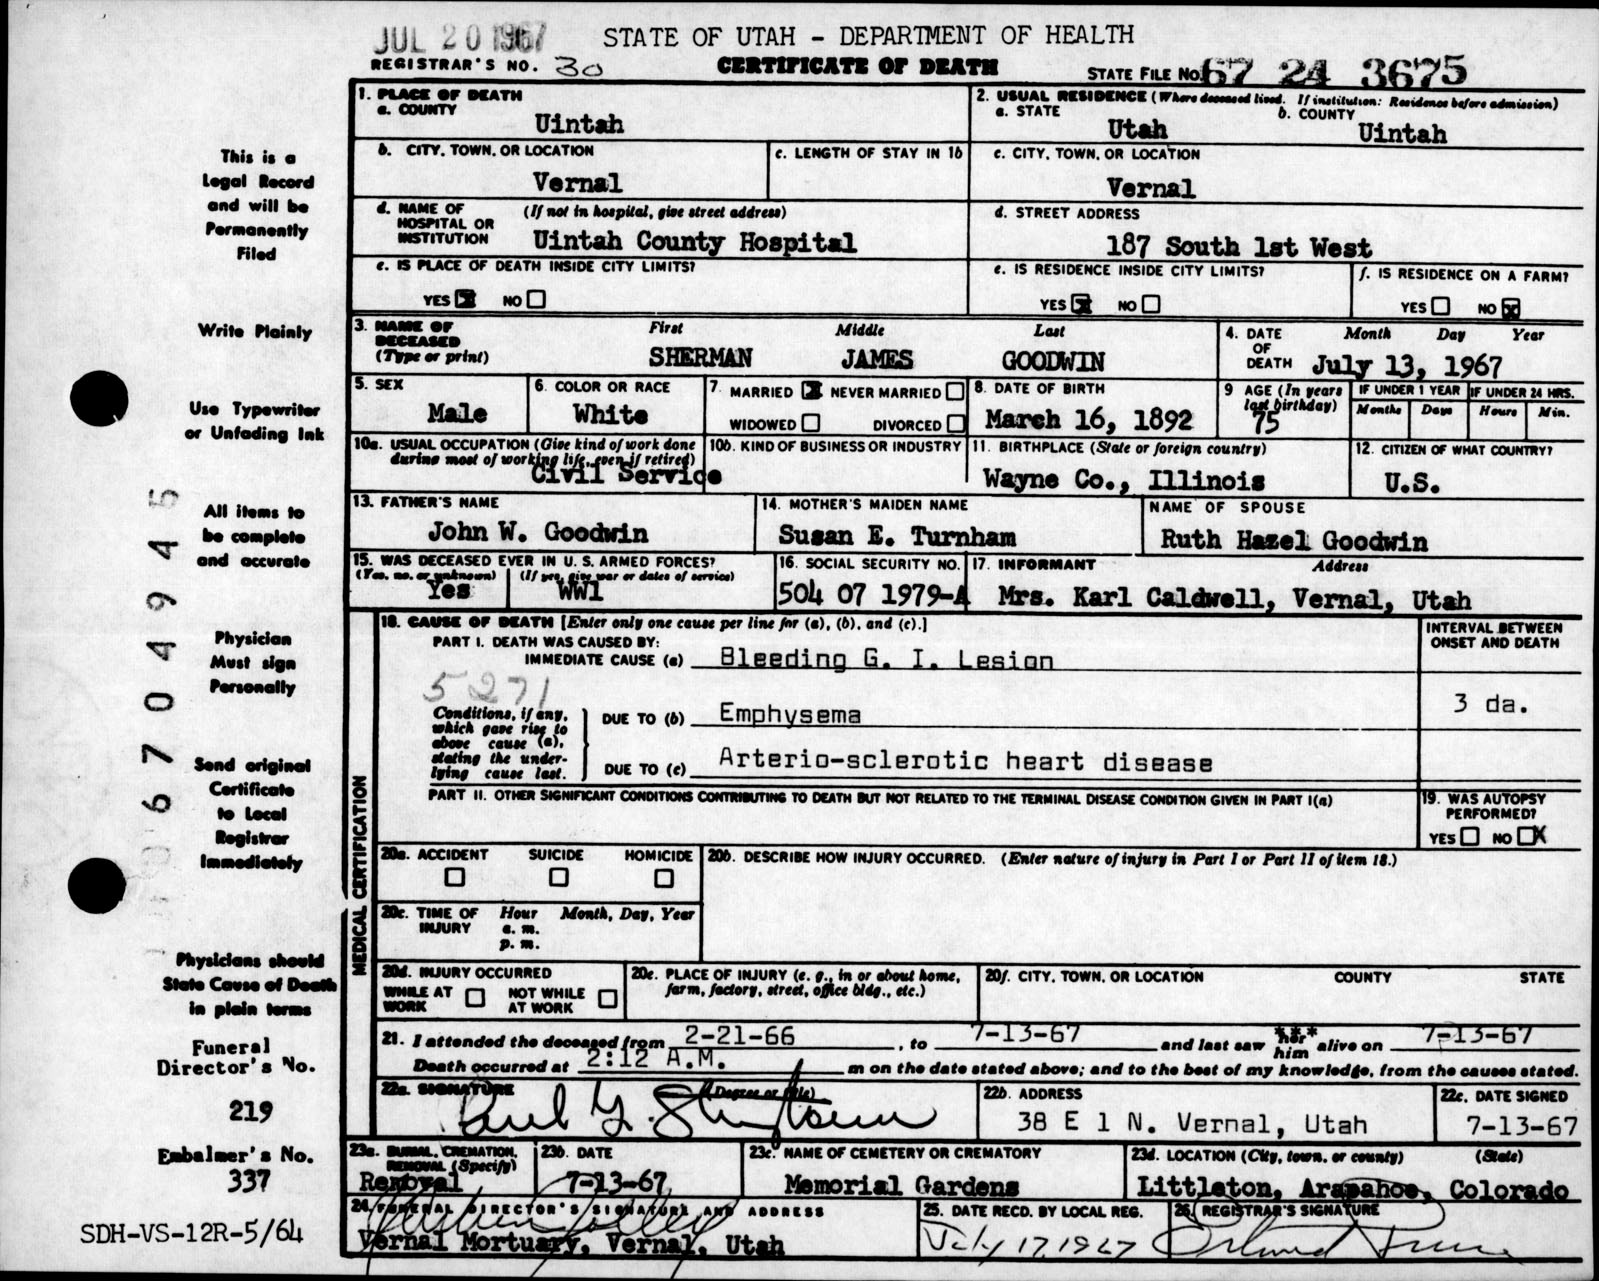 JUL 20 1967
STATE OF UTAH - DEPARTMENT OF HEALTH
REGISTRAR'S NO. 30
CERTIFICATE OF DEATH
STATE FILE NO. 67 24 3675
1. PLACE OF DEATH
a. COUNTY
Uintah
2. USUAL RESIDENCE (Where deceased lived. If institution: Residence before admission)
a. STATE
Utah
b. COUNTY
Uintah
b. CITY, TOWN, OR LOCATION
Vernal
c. LENGTH OF STAY IN 1b
c. CITY, TOWN, OR LOCATION
Vernal
d. NAME OF HOSPITAL OR INSTITUTION
(If not in hospital, give street address)
Uintah County Hospital
d. STREET ADDRESS
187 South 1st West
e. IS PLACE OF DEATH INSIDE CITY LIMITS?
YES X NO
e. IS RESIDENCE INSIDE CITY LIMITS?
YES X NO
f. IS RESIDENCE ON A FARM?
YES NO X
3. NAME OF DECEASED
(Type or print)
First Middle Last
SHERMAN JAMES GOODWIN
4. DATE OF DEATH
Month Day Year
July 13, 1967
5. SEX
Male
6. COLOR OR RACE
White
7. MARRIED X NEVER MARRIED
WIDOWED DIVORCED
8. DATE OF BIRTH
March 16, 1892
9 AGE (In years last birthday)
75
IF UNDER 1 YEAR
Months Days
IF UNDER 24 HRS.
Hours Min.
10a. USUAL OCCUPATION (Give kind of work done during most of working life, even if retired)
Civil Service
10b. KIND OF BUSINESS OR INDUSTRY
11. BIRTHPLACE (State or foreign country)
Wayne Co., Illinois
12. CITIZEN OF WHAT COUNTRY?
U.S.
13. FATHER'S NAME
John W. Goodwin
14. MOTHER'S MAIDEN NAME
Susan E. Turnham
NAME OF SPOUSE
Ruth Hazel Goodwin
15. WAS DECEASED EVER IN U. S. ARMED FORCES?
(Yes, no, or unknown) (If yes, give war or dates of service)
Yes WW1
16. SOCIAL SECURITY NO.
504 07 1979-A
17. INFORMANT Address
Mrs. Karl Caldwell, Vernal, Utah
18. CAUSE OF DEATH [Enter only one cause per line for (a), (b), and (c).]
PART I. DEATH WAS CAUSED BY:
IMMEDIATE CAUSE (a) Bleeding G. I. Lesion
5271
Conditions, if any, which gave rise to above cause (a), stating the underlying cause last.
DUE TO (b) Emphysema
DUE TO (c) Arterio-sclerotic heart disease
INTERVAL BETWEEN ONSET AND DEATH
3 da.
PART II. OTHER SIGNIFICANT CONDITIONS CONTRIBUTING TO DEATH BUT NOT RELATED TO THE TERMINAL DISEASE CONDITION GIVEN IN PART I(a)
19. WAS AUTOPSY PERFORMED?
YES NO X
MEDICAL CERTIFICATION
20a. ACCIDENT SUICIDE HOMICIDE
20b. DESCRIBE HOW INJURY OCCURRED. (Enter nature of injury in Part I or Part II of item 18.)
20c. TIME OF INJURY
Hour Month, Day, Year
a. m.
p. m.
20d. INJURY OCCURRED
WHILE AT WORK NOT WHILE AT WORK
20e. PLACE OF INJURY (e. g., in or about home, farm, factory, street, office bldg., etc.)
20f. CITY, TOWN, OR LOCATION COUNTY STATE
21. I attended the deceased from 2-21-66, to 7-13-67 and last saw her him alive on 7-13-67
Death occurred at 2:12 A.M. m on the date stated above; and to the best of my knowledge, from the causes stated.
22a. SIGNATURE (Degree or title)
Paul G. Stringham
22b. ADDRESS
38 E 1 N. Vernal, Utah
22c. DATE SIGNED
7-13-67
23a. BURIAL, CREMATION, REMOVAL (Specify)
Removal
23b. DATE
7-13-67
23c. NAME OF CEMETERY OR CREMATORY
Memorial Gardens
23d. LOCATION (City, town, or county) (State)
Littleton, Arapahoe, Colorado
24. FUNERAL DIRECTOR'S SIGNATURE AND ADDRESS
Vernal Mortuary, Vernal, Utah
25. DATE RECD. BY LOCAL REG.
July 17, 1967
26. REGISTRAR'S SIGNATURE
This is a
Legal Record
and will be
Permanently
Filed
Write Plainly
Use Typewriter
or Unfading Ink
All items to
be complete
and accurate
Physician
Must sign
Personally
Send original
Certificate
to Local
Registrar
Immediately
Physicians should
State Cause of Death
in plain terms
Funeral
Director's No.
219
Embalmer's No.
337
SDH-VS-12R-5/64
6704945